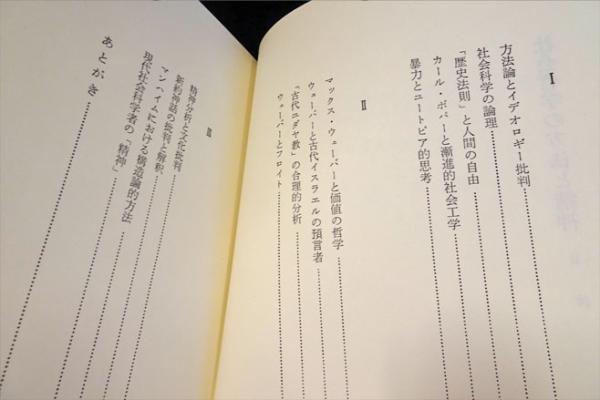 I
方法論とイデオロギー批判
社会科学の論理
「歴史法則」と人間の自由
カール・ポパーと漸進的社会工学
暴力とユートピア的思考
II
マックス・ウェーバーと価値の哲学
ウェーバーと古代イスラエルの預言者
「古代ユダヤ教」の合理的分析
ウェーバーとフロイト
III
精神分析と文化批判
新約神話の批判と解釈
マンハイムにおける構造論的方法
現代社会科学者の「精神」
あとがき